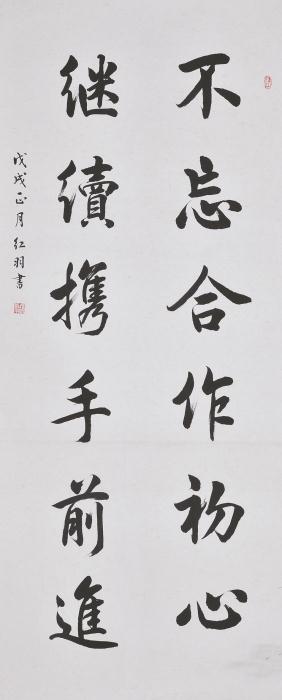 不忘合作初心
继续携手前進
戊戌正月红羽書